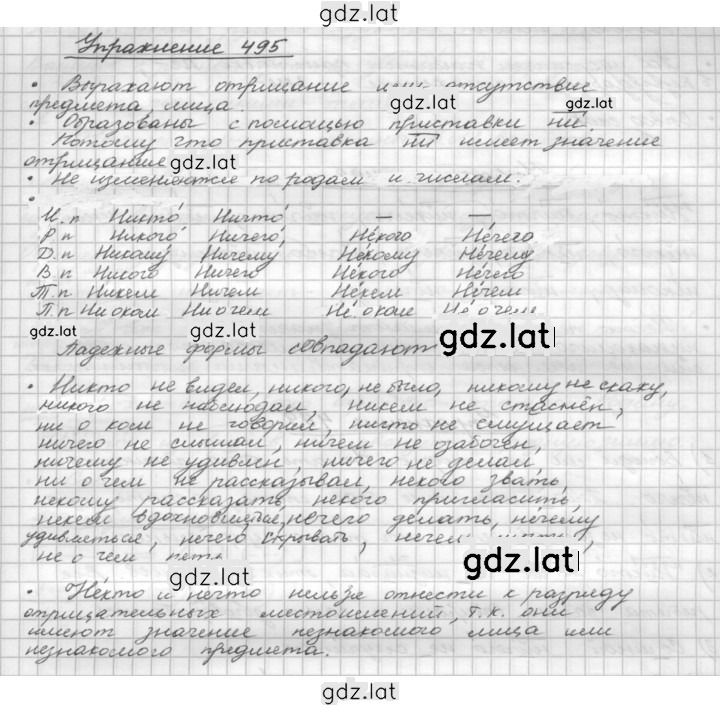 gdz.lat
Упражнение 495
• Выражают отрицание или отсутствие
предмета, лица.
gdz.lat gdz.lat
• Образованы с помощью приставки ни.
Потому что приставка ни имеет значение
отрицание gdz.lat
• Не изменяются по родам и числам.
•
И.п Никто́ Ничто́ — —
Р.п Никого́ Ничего́, Не́кого Не́чего
Д.п Никому́ Ничему́ Не́кому Не́чему
В.п Никого Ничего Не́кого Не́чего
Т.п Никем Ничем Не́кем Не́чем
П.п Ни о ком Ни о чем Не́ о ком Не́ о чем
gdz.lat gdz.lat gdz.lat
Падежные формы совпадают
• Никто не видел, никого, не было, никому не скажу,
никого не наблюдал, никем не спасён,
ни о ком не говорил, ничто не смущает
ничего не слышал, ничем не озабочен,
ничему не удивлен, ничего не делал,
ни о чем не рассказывал, некого звать,
некому рассказать, некого пригласить,
некем вдохновиться, нечего делать, нечему
удивляться, нечего скрывать, нечем
gdz.lat
не о чем петь
gdz.lat
• Не́кто и нечто нельзя отнести к разряду
отрицательных местоимений, т.к. они
имеют значение незнакомого лица или
незнакомого предмета.
gdz.lat